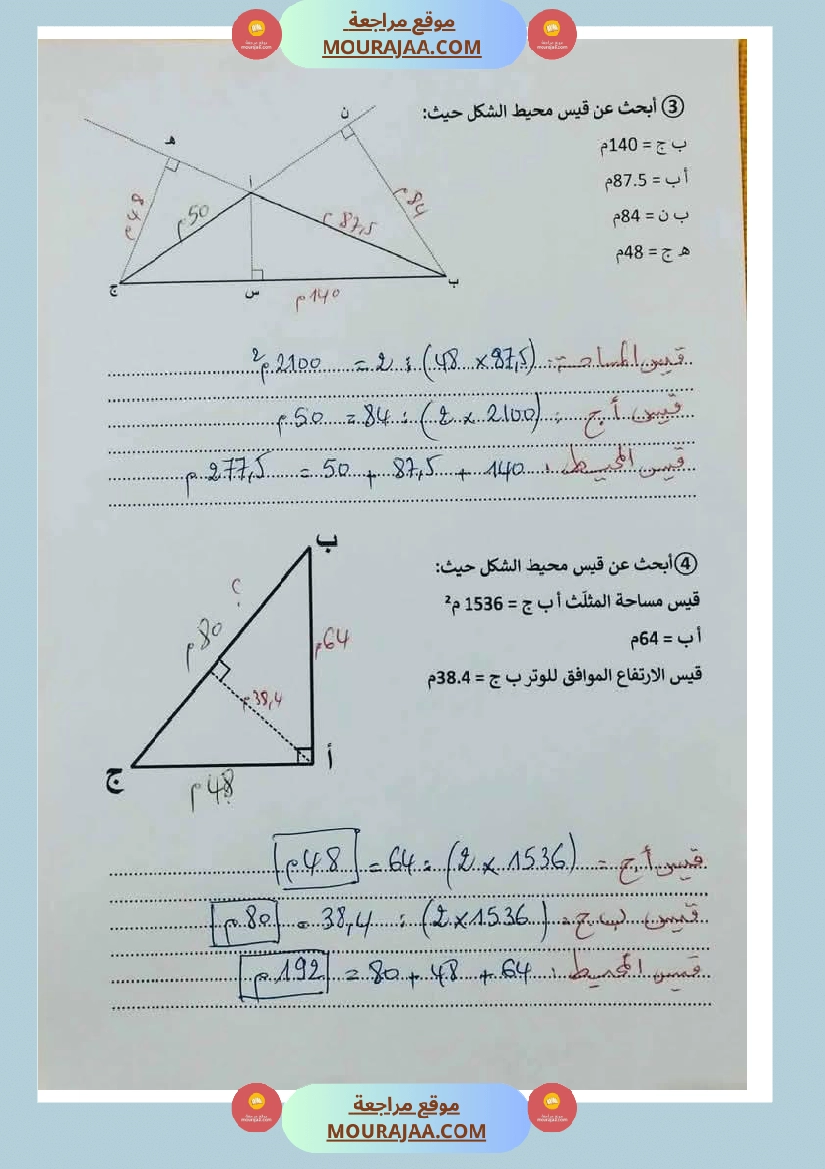 موقع مراجعة
MOURAJAA.COM
③ أبحث عن قيس محيط الشكل حيث:
ب ج = 140م
أ ب = 87.5م
ب ن = 84م
ه ج = 48م
ن
هـ
ا
48م
50م
87,5م
84م
ج
س
ب
140م
قيس المساحة : (87,5 × 48) : 2 = 2100م²
قيس أ ج : (2100 × 2) : 84 = 50م
قيس المحيط : 140 + 87,5 + 50 = 277,5م
④ أبحث عن قيس محيط الشكل حيث:
قيس مساحة المثلّث أ ب ج = 1536 م²
أ ب = 64م
قيس الارتفاع الموافق للوتر ب ج = 38.4م
ب
؟
80م
64م
38,4م
أ
ج
48م
قيس أ ج = (1536 × 2) : 64 = 48م
قيس ب ج = (1536 × 2) : 38,4 = 80م
قيس المحيط : 64 + 48 + 80 = 192م
موقع مراجعة
MOURAJAA.COM